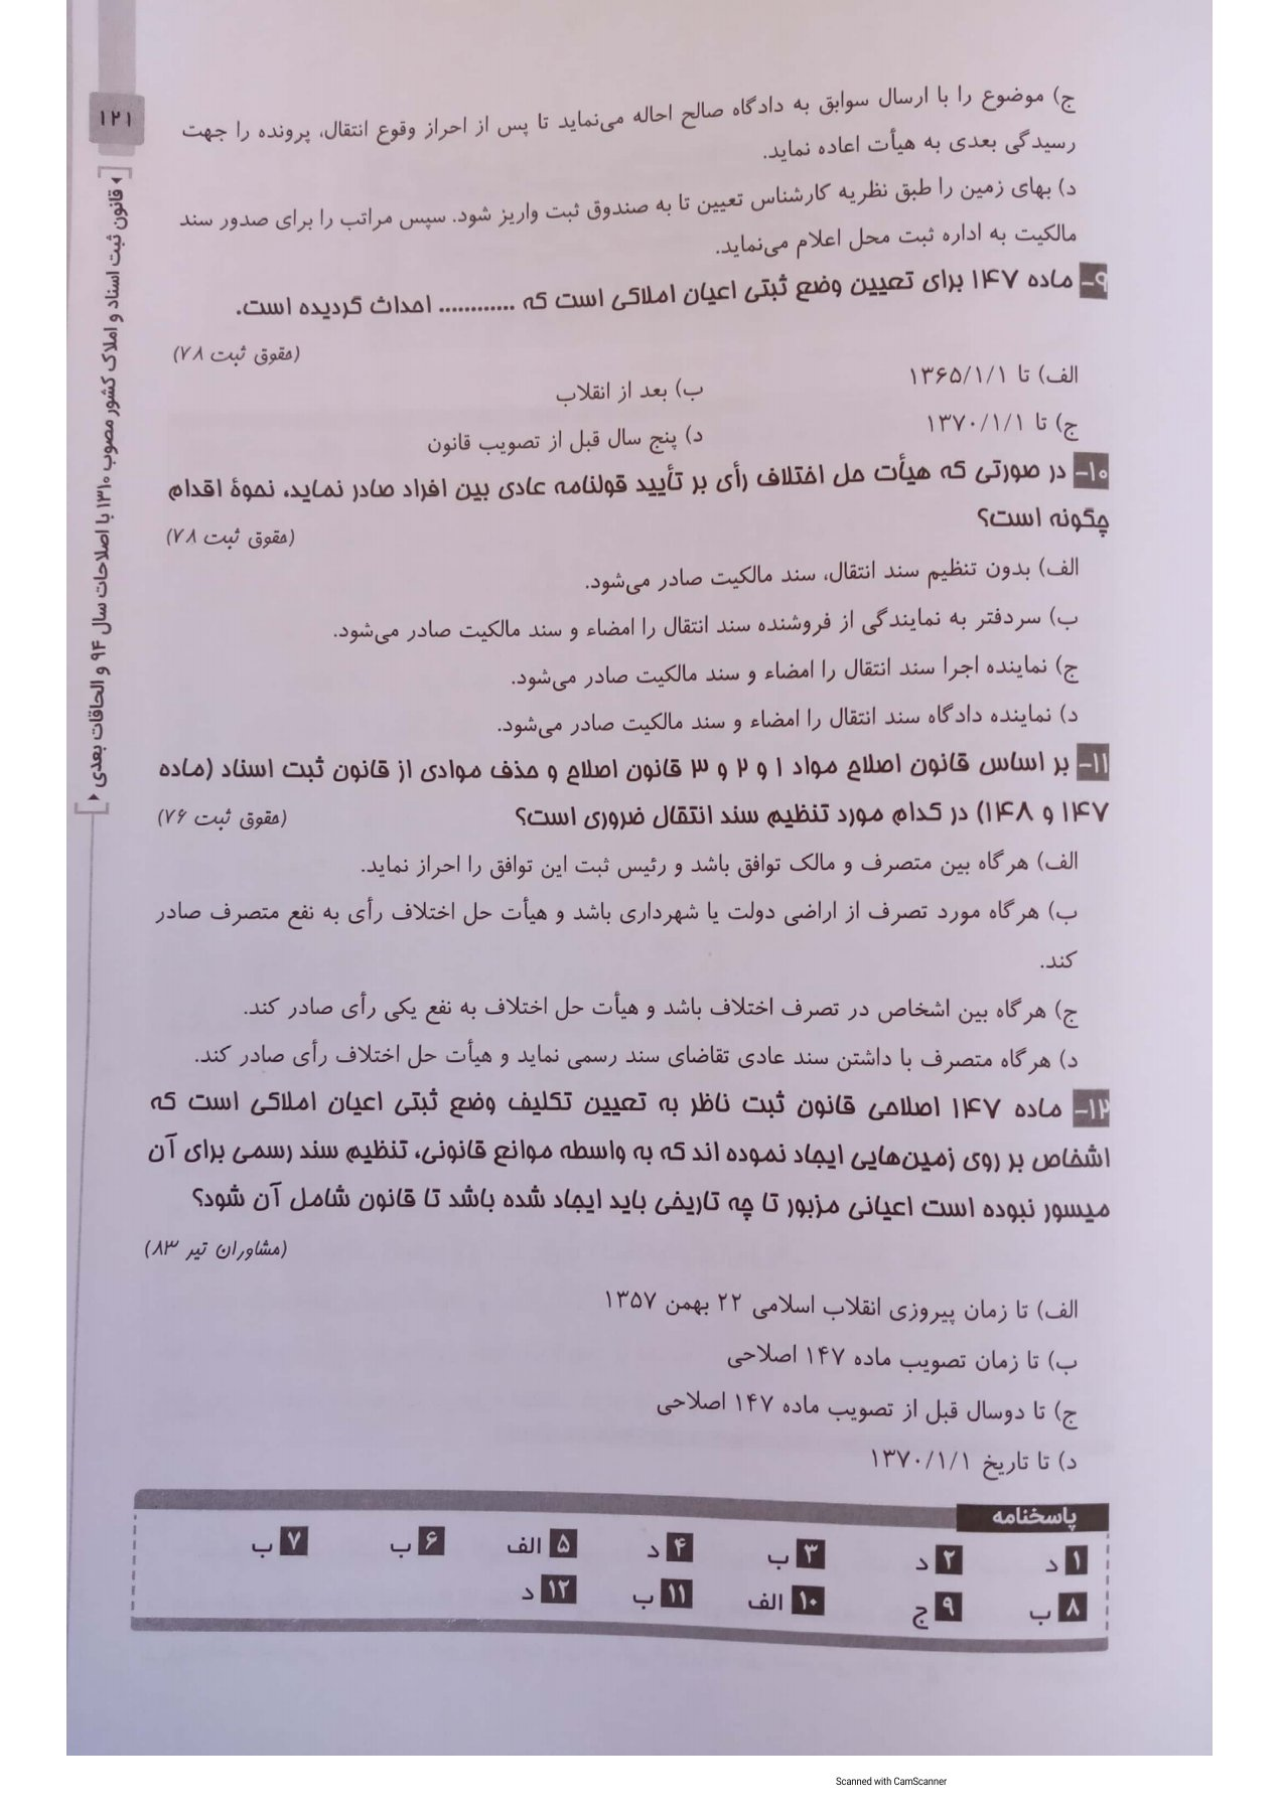 ۱۲۱
◂ قانون ثبت اسناد و املاک کشور مصوب ۱۳۱۰ با اصلاحات سال ۹۴ و الحاقات بعدی ▸
ج) موضوع را با ارسال سوابق به دادگاه صالح احاله می‌نماید تا پس از احراز وقوع انتقال، پرونده را جهت
رسیدگی بعدی به هیأت اعاده نماید.
د) بهای زمین را طبق نظریه کارشناس تعیین تا به صندوق ثبت واریز شود. سپس مراتب را برای صدور سند
مالکیت به اداره ثبت محل اعلام می‌نماید.
۹- ماده ۱۴۷ برای تعیین وضع ثبتی اعیان املاکی است که ............ احداث گردیده است.
(حقوق ثبت ۷۸)
الف) تا ۱۳۶۵/۱/۱
ب) بعد از انقلاب
ج) تا ۱۳۷۰/۱/۱
د) پنج سال قبل از تصویب قانون
۱۰- در صورتی که هیأت حل اختلاف رأی بر تأیید قولنامه عادی بین افراد صادر نماید، نحوۀ اقدام
چگونه است؟
(حقوق ثبت ۷۸)
الف) بدون تنظیم سند انتقال، سند مالکیت صادر می‌شود.
ب) سردفتر به نمایندگی از فروشنده سند انتقال را امضاء و سند مالکیت صادر می‌شود.
ج) نماینده اجرا سند انتقال را امضاء و سند مالکیت صادر می‌شود.
د) نماینده دادگاه سند انتقال را امضاء و سند مالکیت صادر می‌شود.
۱۱- بر اساس قانون اصلاح مواد ۱ و ۲ و ۳ قانون اصلاح و حذف موادی از قانون ثبت اسناد (ماده
۱۴۷ و ۱۴۸) در کدام مورد تنظیم سند انتقال ضروری است؟
(حقوق ثبت ۷۶)
الف) هرگاه بین متصرف و مالک توافق باشد و رئیس ثبت این توافق را احراز نماید.
ب) هرگاه مورد تصرف از اراضی دولت یا شهرداری باشد و هیأت حل اختلاف رأی به نفع متصرف صادر
کند.
ج) هرگاه بین اشخاص در تصرف اختلاف باشد و هیأت حل اختلاف به نفع یکی رأی صادر کند.
د) هرگاه متصرف با داشتن سند عادی تقاضای سند رسمی نماید و هیأت حل اختلاف رأی صادر کند.
۱۲- ماده ۱۴۷ اصلاحی قانون ثبت ناظر به تعیین تکلیف وضع ثبتی اعیان املاکی است که
اشخاص بر روی زمین‌هایی ایجاد نموده اند که به واسطه موانع قانونی، تنظیم سند رسمی برای آن
میسور نبوده است اعیانی مزبور تا چه تاریخی باید ایجاد شده باشد تا قانون شامل آن شود؟
(مشاوران تیر ۸۳)
الف) تا زمان پیروزی انقلاب اسلامی ۲۲ بهمن ۱۳۵۷
ب) تا زمان تصویب ماده ۱۴۷ اصلاحی
ج) تا دوسال قبل از تصویب ماده ۱۴۷ اصلاحی
د) تا تاریخ ۱۳۷۰/۱/۱
پاسخنامه
۱ د ۲ د ۳ ب ۴ د ۵ الف ۶ ب ۷ ب
۸ ب ۹ ج ۱۰ الف ۱۱ ب ۱۲ د
Scanned with CamScanner